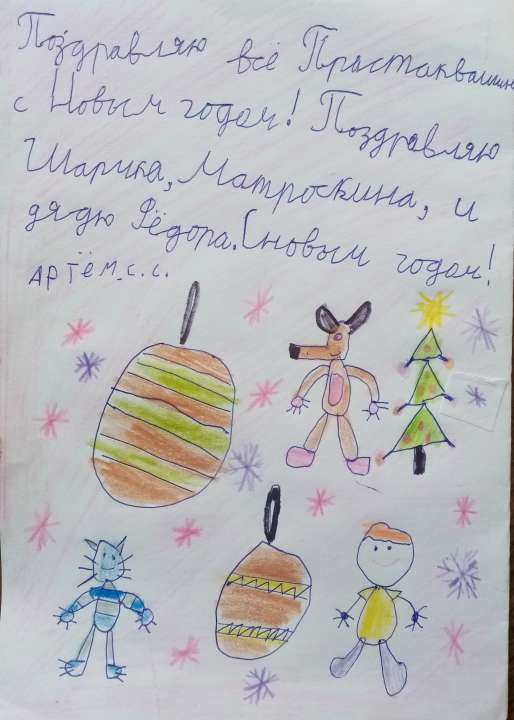 Поздравляю всё Простаквашино
с Новым годом! Поздравляю
Шарика, Матроскина, и
дядю Фёдора. С новым годом!
АРТЁМ.С.С.